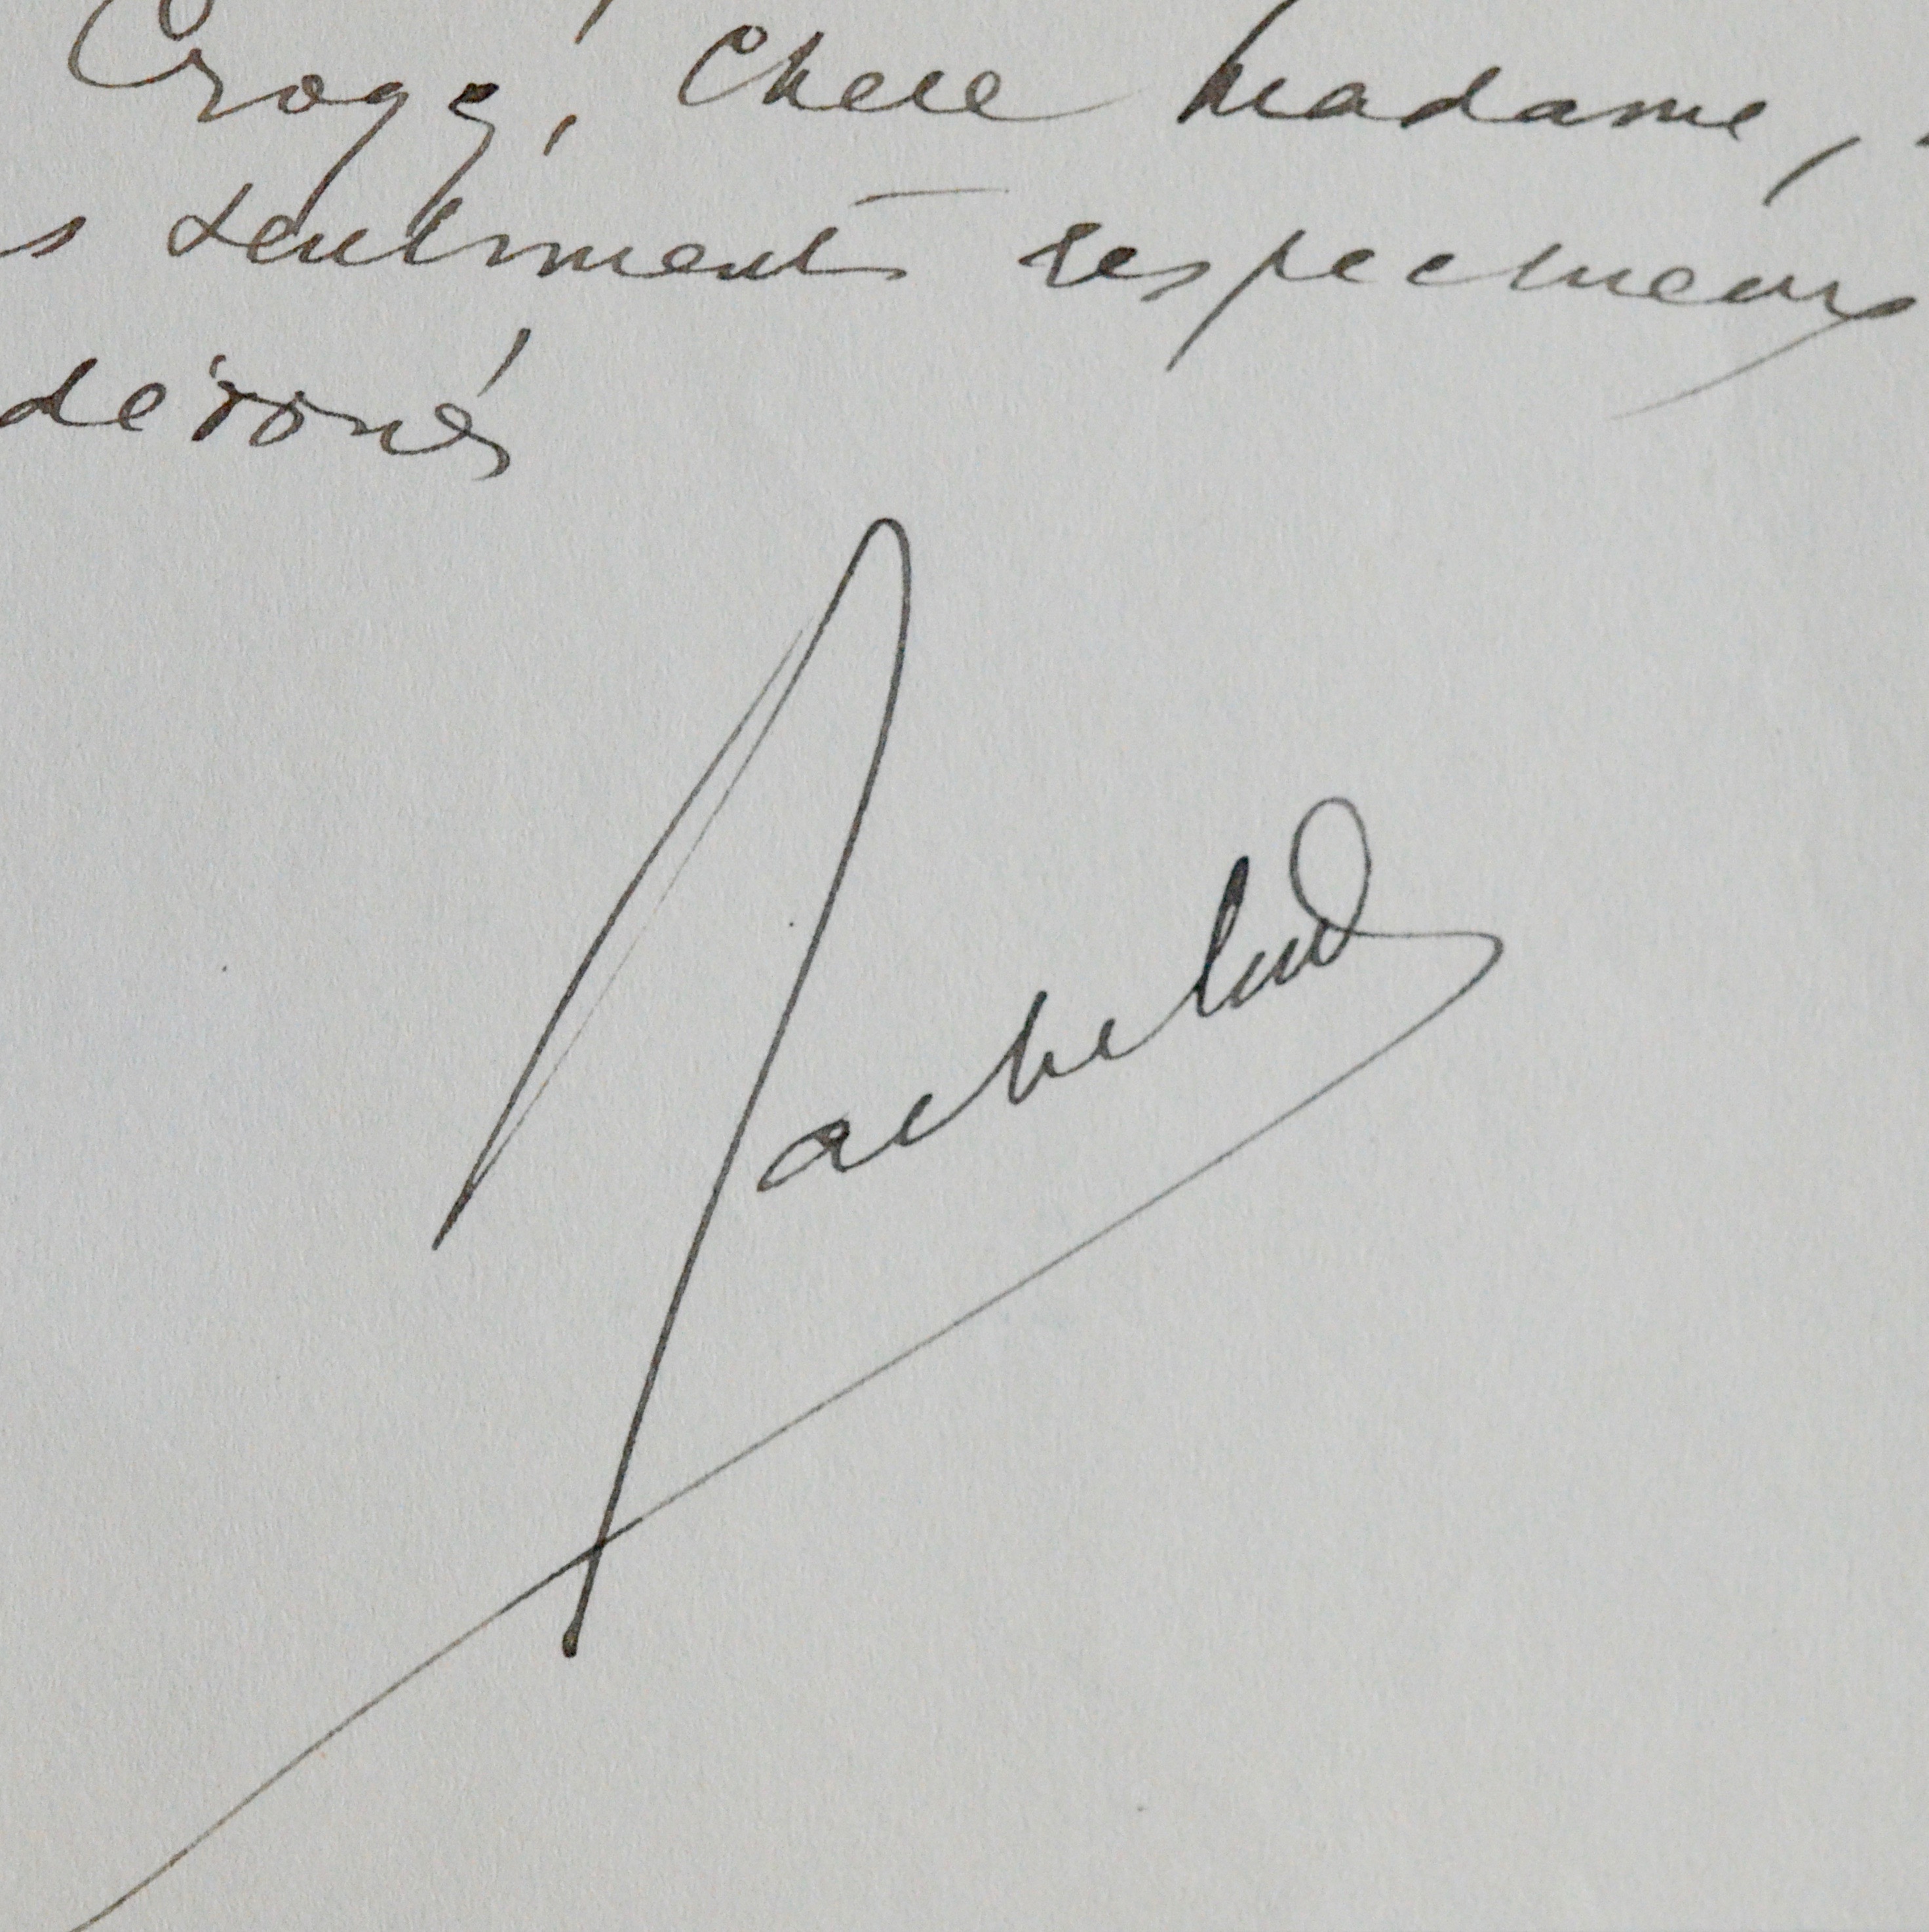 Croyez, Chère Madame,
s sentiments respectueux
dévoués